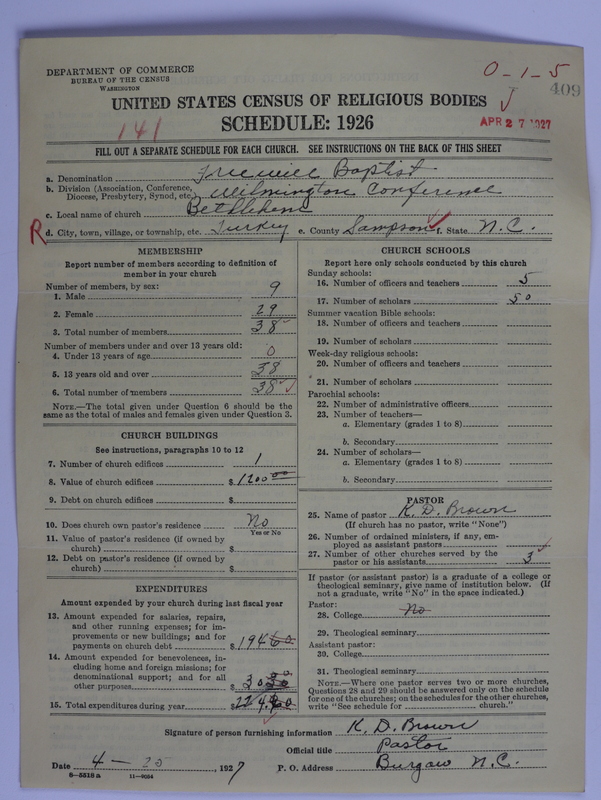 DEPARTMENT OF COMMERCE
BUREAU OF THE CENSUS
WASHINGTON
0-1-5
409
UNITED STATES CENSUS OF RELIGIOUS BODIES
SCHEDULE: 1926
APR 27 1927
141
FILL OUT A SEPARATE SCHEDULE FOR EACH CHURCH. SEE INSTRUCTIONS ON THE BACK OF THIS SHEET
a. Denomination Freewill Baptist
b. Division (Association, Conference, Diocese, Presbytery, Synod, etc.) Wilmington Conference
c. Local name of church Bethlehem
R d. City, town, village, or township, etc. Turkey e. County Sampson f. State N.C.
MEMBERSHIP
Report number of members according to definition of member in your church
Number of members, by sex:
1. Male 9
2. Female 29
3. Total number of members 38
Number of members under and over 13 years old:
4. Under 13 years of age 0
5. 13 years old and over 38
6. Total number of members 38
NOTE.—The total given under Question 6 should be the same as the total of males and females given under Question 3.
CHURCH BUILDINGS
See instructions, paragraphs 10 to 12
7. Number of church edifices 1
8. Value of church edifices $1200.00
9. Debt on church edifices $
10. Does church own pastor's residence No
Yes or No
11. Value of pastor's residence (if owned by church) $
12. Debt on pastor's residence (if owned by church) $
EXPENDITURES
Amount expended by your church during last fiscal year
13. Amount expended for salaries, repairs, and other running expenses; for improvements or new buildings; and for payments on church debt $194
14. Amount expended for benevolences, including home and foreign missions; for denominational support; and for all other purposes $30
15. Total expenditures during year $224
CHURCH SCHOOLS
Report here only schools conducted by this church
Sunday schools:
16. Number of officers and teachers 5
17. Number of scholars 50
Summer vacation Bible schools:
18. Number of officers and teachers
19. Number of scholars
Week-day religious schools:
20. Number of officers and teachers
21. Number of scholars
Parochial schools:
22. Number of administrative officers
23. Number of teachers—
a. Elementary (grades 1 to 8)
b. Secondary
24. Number of scholars—
a. Elementary (grades 1 to 8)
b. Secondary
PASTOR
25. Name of pastor K. D. Brown
(If church has no pastor, write "None")
26. Number of ordained ministers, if any, employed as assistant pastors
27. Number of other churches served by the pastor or his assistants 3
If pastor (or assistant pastor) is a graduate of a college or theological seminary, give name of institution below. (If not a graduate, write "No" in the space indicated.)
Pastor:
28. College No
29. Theological seminary
Assistant pastor:
30. College
31. Theological seminary
NOTE.—Where one pastor serves two or more churches, Questions 28 and 29 should be answered only on the schedule for one of the churches; on the schedules for the other churches, write "See schedule for church."
Signature of person furnishing information K. D. Brown
Official title Pastor
Date 4-25, 1927 P. O. Address Burgaw N.C.
8-5518 a 11-9054